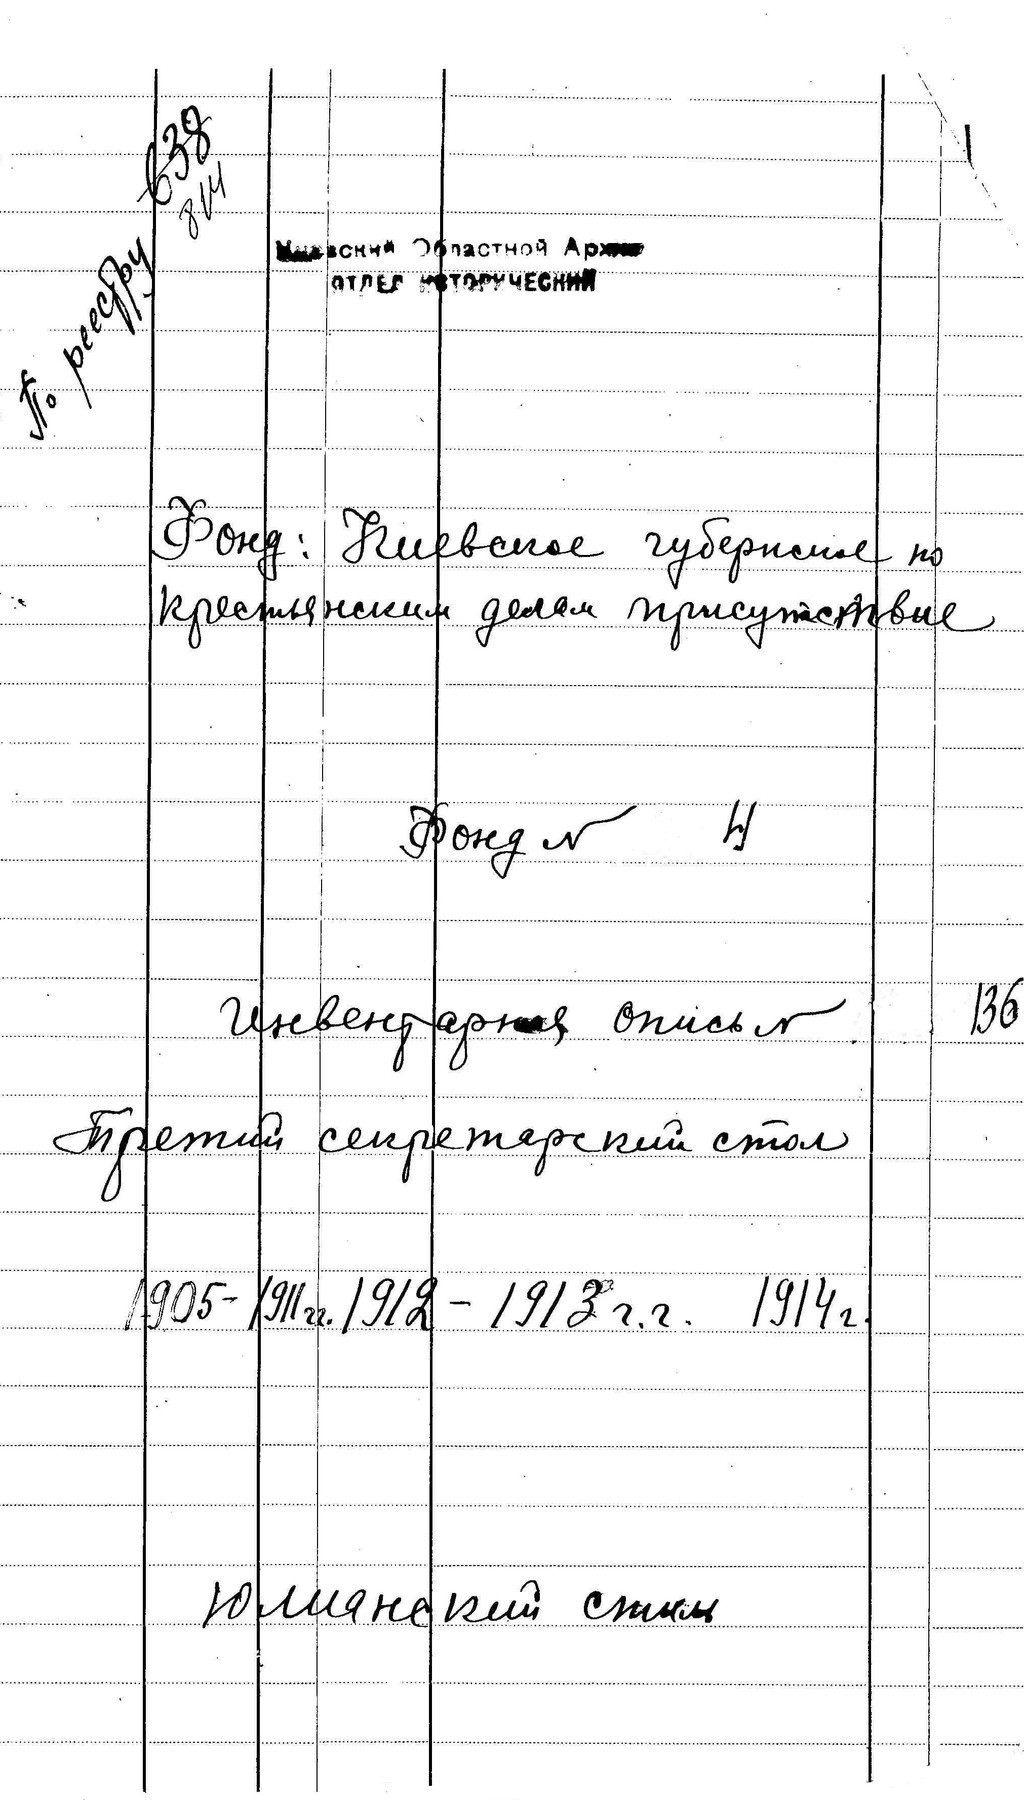 1
По реестру 638
814
Киевский Областной Архив
ОТДЕЛ ИСТОРИЧЕСКИЙ
Фонд: Киевское губернское по
крестьянским делам присутствие
Фонд № 4
Инвентарная опись № 136
Третий секретарский стол
1905-1911гг. 1912 - 1913г.г. 1914г.
Юлианский стиль